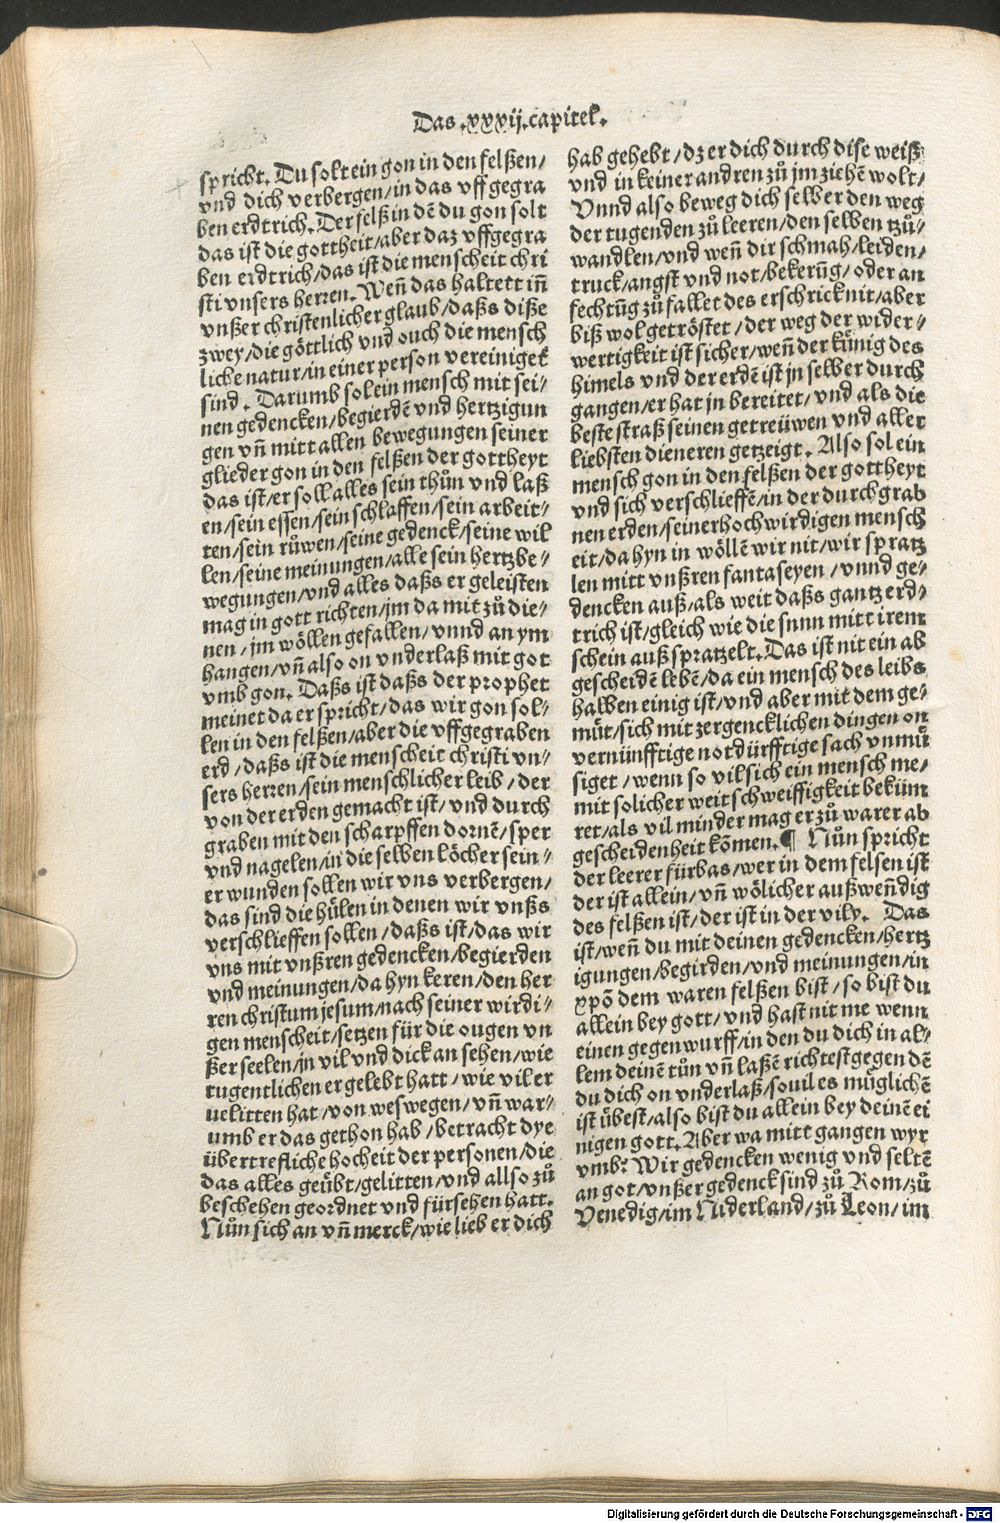 Das .xxxij. capitel.
spricht. Du solt ein gon in den felßen/
vnd dich verbergen/in das vff gegra
ben erdtrich. Der felß in dē du gon solt
das ist die gottheit/aber daz vffgegra
ben erdtrich/das ist die menscheit chri
sti vnsers herren. Weñ das haltett iñ
vnßer christenlicher glaub/daßs diße
zwey/die göttlich vnd ouch die mensch
liche natur/in einer person vereiniget
sind. Darumb sol ein mensch mit sei/
nen gedencken/begierdē vnd hertzigun
gen vñ mitt allen bewegungen seiner
glieder gon in den felßen der gottheyt
das ist/er soll alles sein thůn vnd laß
en/sein essen/sein schlaffen/sein arbeit/
ten/sein růwen/seine gedenck/seine wil
len/seine meinungen/alle sein hertzbe/
wegungen/vnd alles daßs er geleisten
mag in gott richten/jm da mit zů die/
nen/jm wöllen gefallen/vnnd an ym
hangen/vñ also on vnderlaß mit got
vmb gon. Daßs ist daßs der prophet
meinet da er spricht/das wir gon sol/
len in den felßen/aber die vffgegraben
erd/daßs ist die menscheit christi vn/
sers herren/sein menschlicher leib/der
von der erden gemacht ist/vnd durch
graben mit den scharpffen dornē/sper
vnd nagelen/in die selben löcher sein/
er wunden sollen wir vns verbergen/
das sind die hülen in denen wir vnßs
verschlieffen sollen/daßs ist/das wir
vns mit vnßren gedencken/begierden
vnd meinungen/da hyn keren/den her
ren christum jesum/nach seiner wirdi/
gen menscheit/setzen für die ougen vn
ßer seelen/jn vil vnd dick an sehen/wie
tugentlichen er gelebt hatt/wie vil er
uelitten hat/von weswegen/vñ war/
umb er das gethon hab/betracht dye
übertrefliche hocheit der personen/die
das alles geübt/gelitten/vnd allso zů
beschehen geordnet vnd fürsehen hatt.
Nůn sich an vñ merck/wie lieb er dich
hab gehebt/dz er dich durch dise weiß
vnd in keiner andren zů jm ziehē wolt/
Vnnd also beweg dich selber den weg
der tugenden zů leeren/den selben tzů/
wandlen/vnd weñ dir schmah/leiden/
truck/angst vnd not/bekerūg/oder an
fechtūg zů fallet des erschrick nit/aber
biß wol getröstet/der weg der wider/
wertigkeit ist sicher/weñ der künig des
himels vnd der erdē ist jn selber durch
gangen/er hat jn bereitet/vnd als die
beste straß seinen getreüwen vnd aller
liebsten dieneren getzeigt. Also sol ein
mensch gon in den felßen der gottheyt
vnd sich verschlieffē/in der durchgrab
nen erden/seiner hochwirdigen mensch
eit/da hyn in wöllē wir nit/wir spratz
len mitt vnßren fantaseyen/vnnd ge/
dencken auß/als weit daßs gantz erd/
trich ist/gleich wie die sunn mitt irem
schein auß spratzelt. Das ist nit ein ab
gescheidē lebē/da ein mensch des leibs
halben einig ist/vnd aber mit dem ge/
müt/sich mit zergencklichen dingen on
vernünfftige notdürfftige sach vnmü
siget/wenn so vil sich ein mensch me/
mit solicher weitschweiffigkeit beküm
ret/als vil minder mag er zů warer ab
gescheidenheit kōmen. ¶ Nůn spricht
der leerer fürbas/wer in dem felsen ist
der ist allein/vñ wölicher außweñdig
des felßen ist/der ist in der vily. Das
ist/weñ du mit deinen gedencken/hertz
igungen/begirden/vnd meinungen/in
xpō dem waren felßen bist/so bist du
allein bey gott/vnd hast nit me wenn
einen gegenwurff/in den du dich in al/
lem deinē tůn vñ laßē richtest gegen dē
du dich on vnderlaß/souil es müglichē
ist übest/also bist du allein bey deinē ei
nigen gott. Aber wa mitt gangen wyr
vmb? Wir gedencken wenig vnd seltē
an got/vnßer gedenck sind zů Rom/zů
Venedig/im Niderland/zů Leon/im
Digitalisierung gefördert durch die Deutsche Forschungsgemeinschaft - DFG